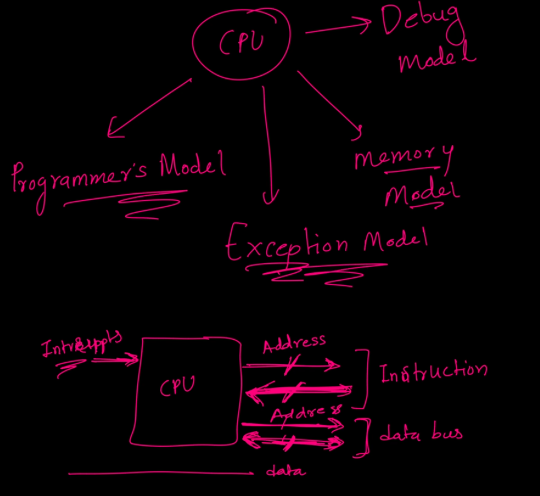 CPU
Debug
Model
Programmer's Model
Memory
Model
Exception Model
Address
CPU
Instruction
Address
data bus
data